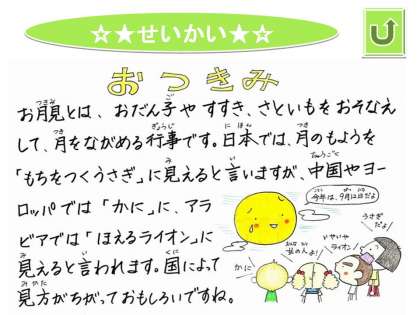 ☆★せいかい★☆
おつきみ
お月見とは、おだん子やすすき、さといもをおそなえ
して、月をながめる行事です。日本では、月のもようを
「もちをつくうさぎ」に見えると言いますが、中国やヨー
ロッパでは「かに」に、アラ
ビアでは「ほえるライオン」に
見えると言われます。国によって
見方がちがっておもしろいですね。
うさぎ
だよ!
いやいや
ライオン!
女の人よ!
かに